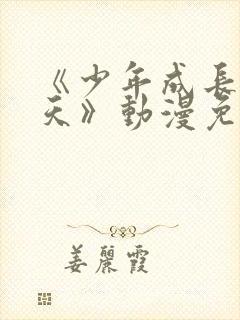 《少年成長
天》動漫免
姜麗霞